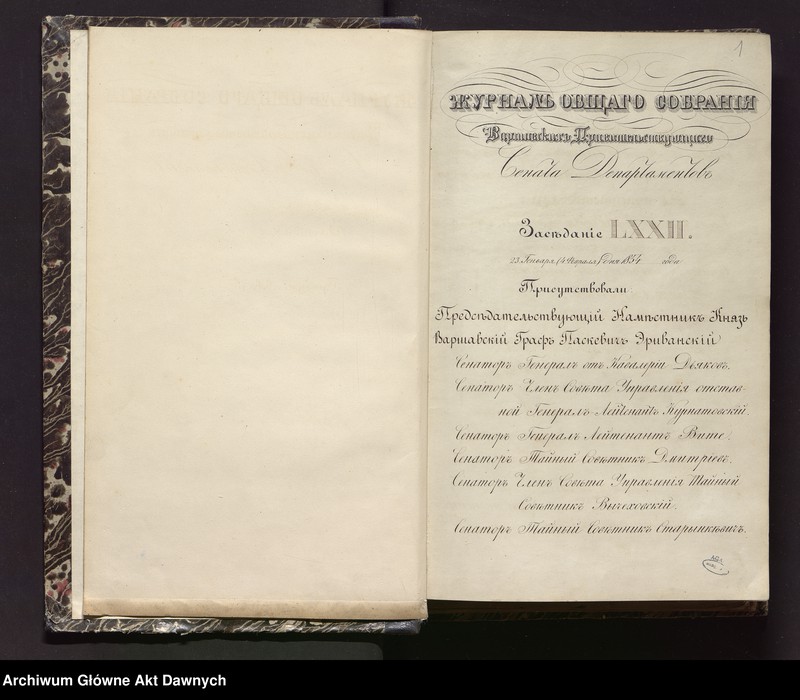 1
ЖУРНАЛЪ ОБЩАГО СОБРАНІЯ
Варшавскихъ Правительствующаго
Сената Департаментовъ
Засѣданіе LXXII.
23. Генваря (4 Февраля) дня 1854 года
Присутствовали:
Предсѣдательствующій Намѣстникъ Князь
Варшавскій Графъ Паскевичъ Эриванскій
Сенаторъ Генералъ отъ Кавалеріи Дьяковъ.
Сенаторъ Членъ Совѣта Управленія отстав-
ной Генералъ-Лейтенантъ Курнатовскій.
Сенаторъ Генералъ Лейтенантъ Вите.
Сенаторъ Тайный Совѣтникъ Дмитріевъ.
Сенаторъ Членъ Совѣта Управленія Тайный
Совѣтникъ Вычеховскій.
Сенаторъ Тайный Совѣтникъ Старынкѣвичъ.
Archiwum Główne Akt Dawnych